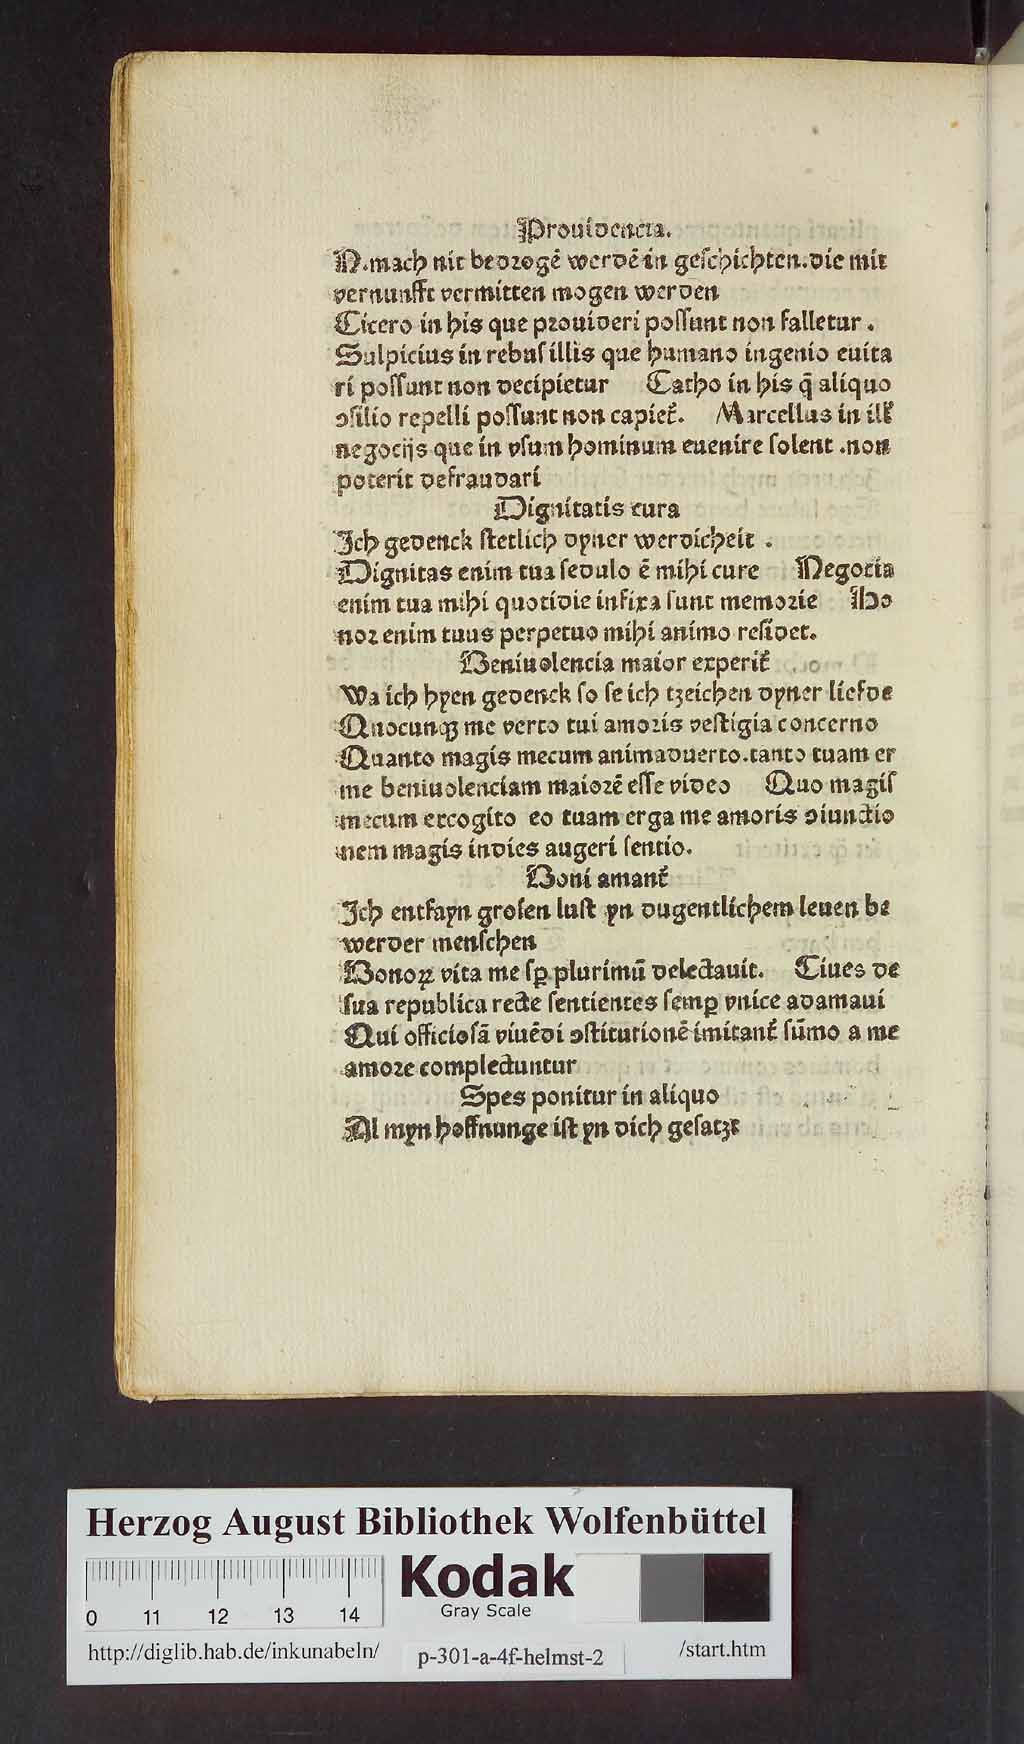 Prouidencia.
N. mach nit bedrogē werdē in geschichten. die mit
vernunfft vermitten mogen werden
Cicero in his que prouideri possunt non falletur .
Sulpicius in rebus illis que humano ingenio euita
ri possunt non decipietur Catho in his q̄ aliquo
ↄsilio repelli possunt non capiet̄. Marcellus in ill̄
negocijs que in vsum hominum euenire solent . non
poterit defraudari
Dignitatis cura
Ich gedenck stetlich dyner werdicheit .
Dignitas enim tua sedulo ē mihi cure Negocia
enim tua mihi quotidie infixa sunt memorie Ho
nor enim tuus perpetuo mihi animo residet.
Beniuolencia maior experit̄
Wa ich hyen gedenck so se ich tzeichen dyner liefde
Quocunqꝫ me verto tui amoris vestigia concerno
Quanto magis mecum animaduerto. tanto tuam er
me beniuolenciam maiorē esse video Quo magis
mecum etcogito eo tuam erga me amoris ↄiunctio
nem magis indies augeri sentio.
Boni amant̄
Ich entfayn grosen lust yn dugentlichem leuen be
werder menschen
Bonoꝝ vita me sꝑ plurimū delectauit. Ciues de
sua republica recte sentientes semꝑ vnice adamaui
Qui officiosā viuēdi ↄstitutionē imitant̄ sūmo a me
amore complectuntur
Spes ponitur in aliquo
Al myn hoffnunge ist yn dich gesatzt
Herzog August Bibliothek Wolfenbüttel
Kodak
Gray Scale
0 11 12 13 14
http://diglib.hab.de/inkunabeln/ p-301-a-4f-helmst-2 /start.htm